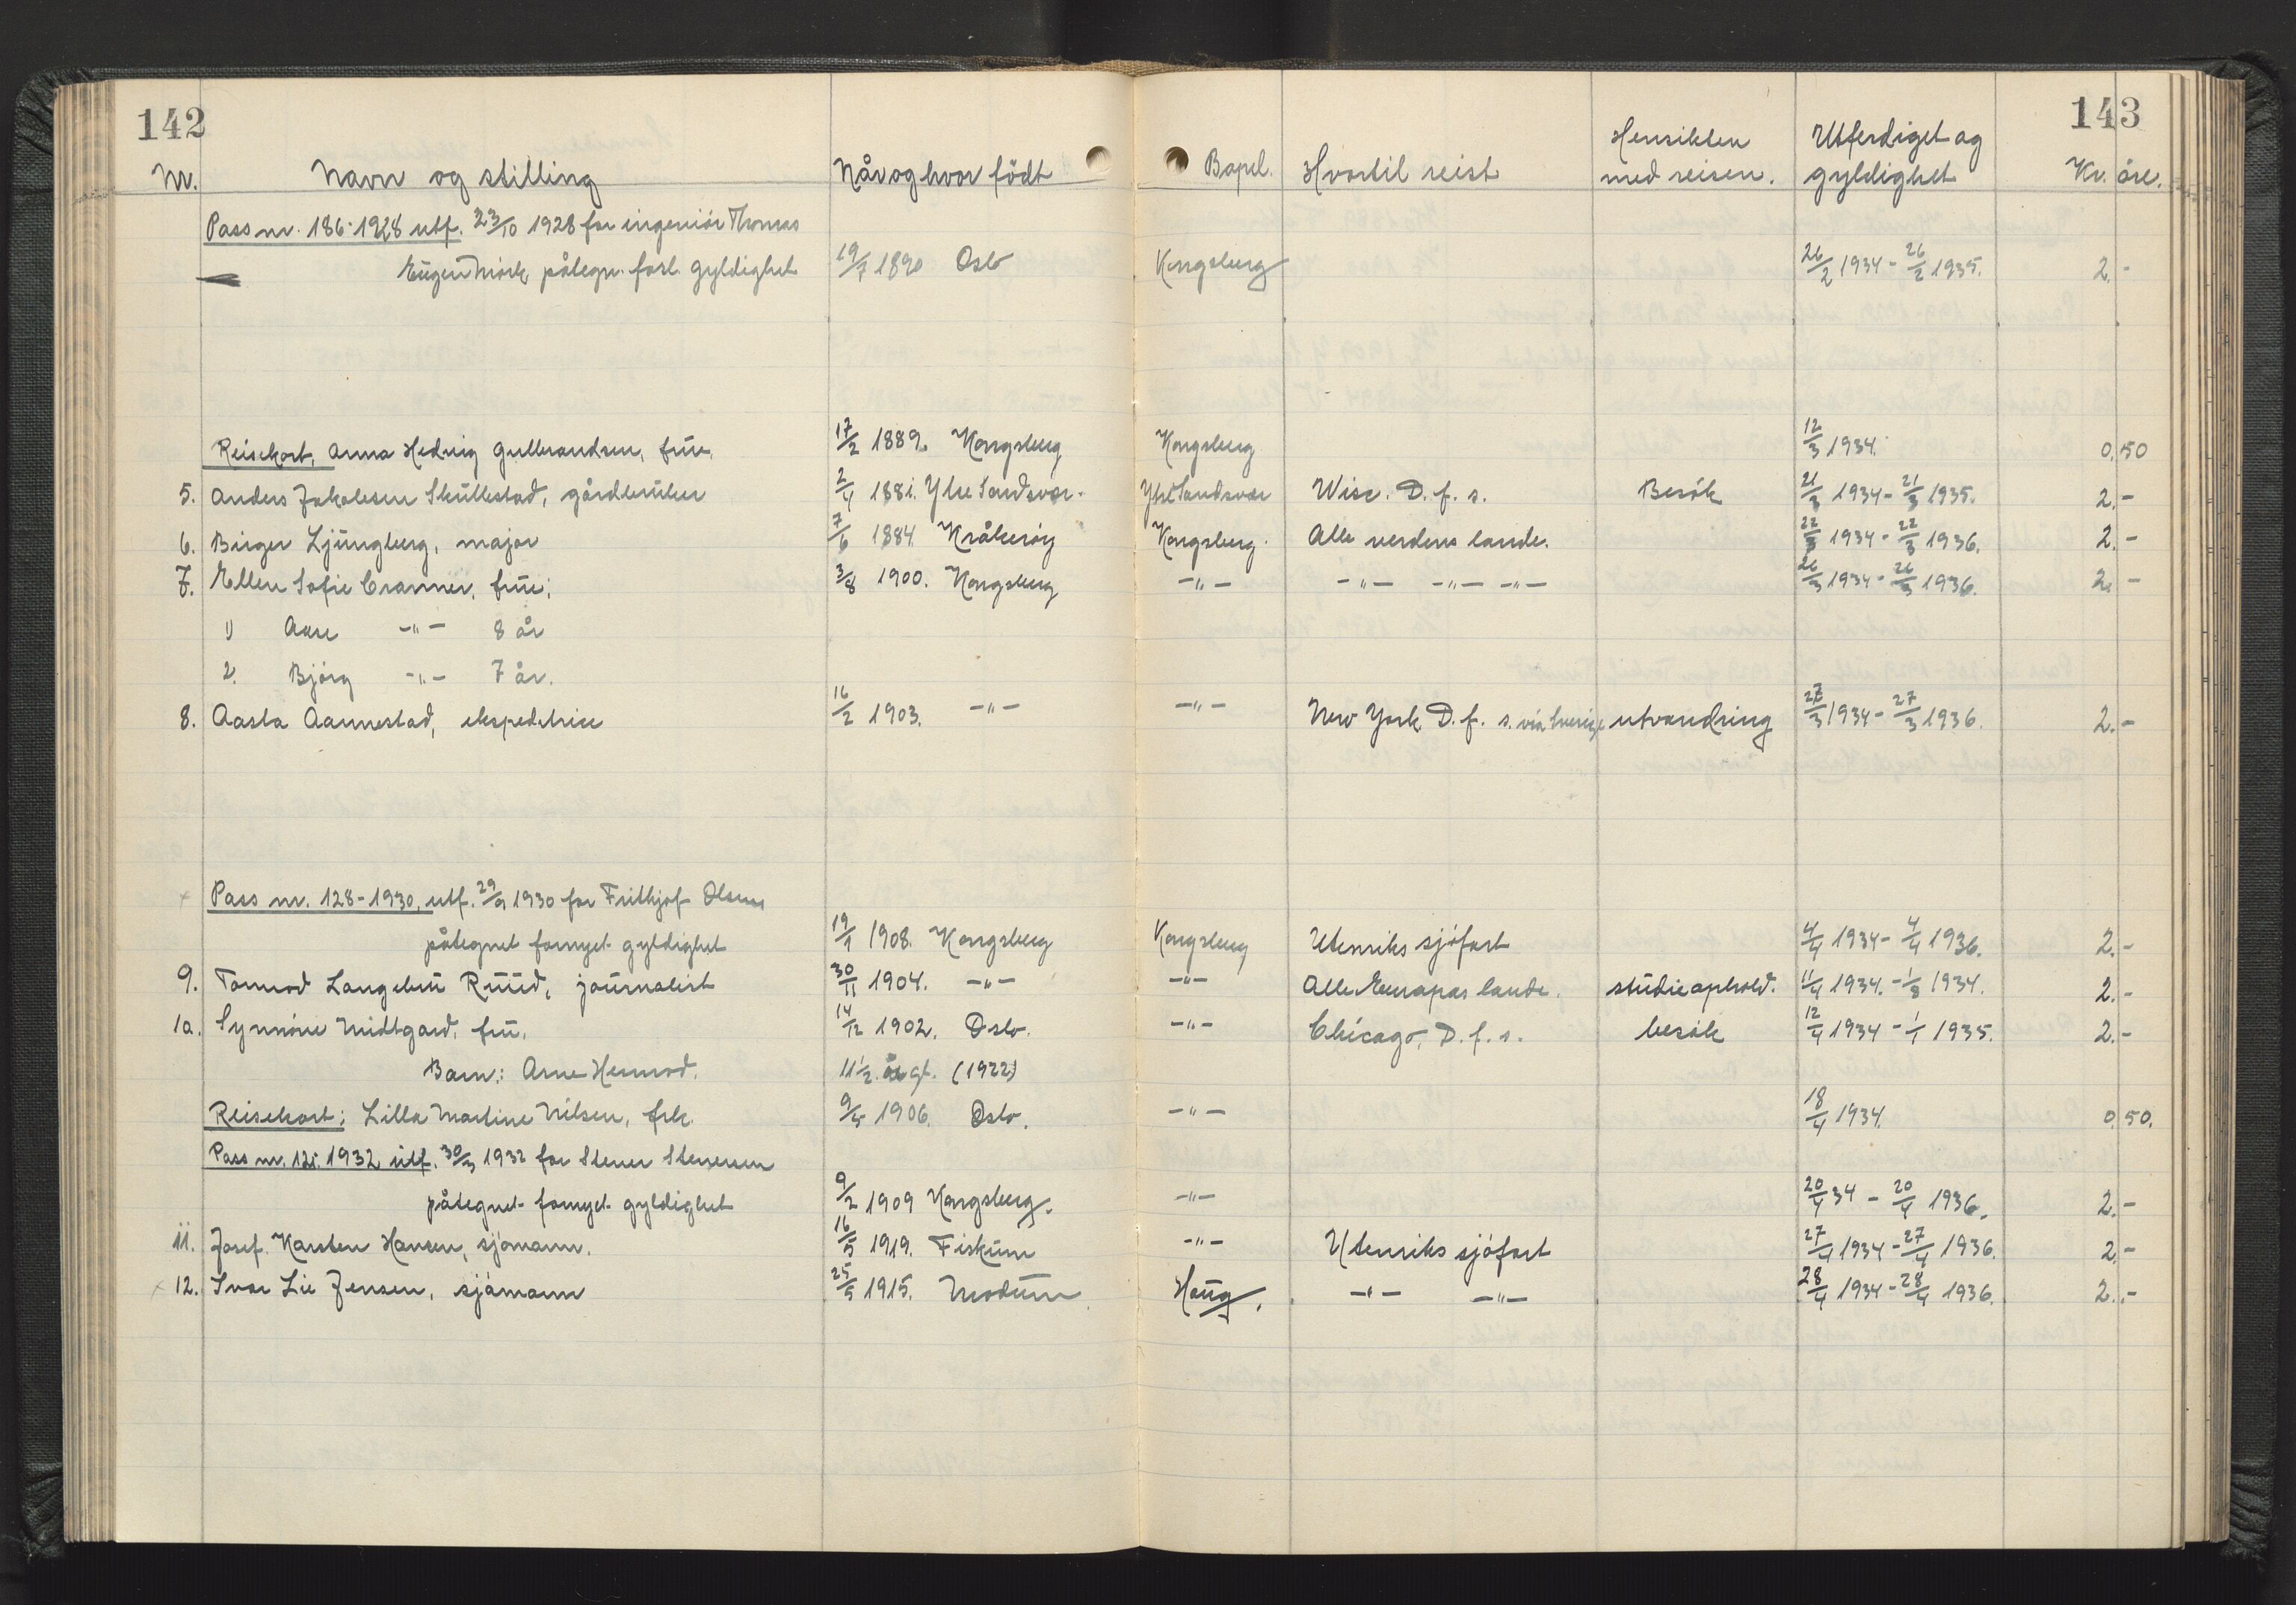 142
143
Nr. Navn og stilling Når og hvor födt Bopel. Hvortil reist Hensikten med reisen. Utferdiget og gyldighet Kr. öre.
Pass nr. 186-1928 utf. 23/10 1928 for ingeniör Thomas
Eugen Mörk, påtegn. forl. gyldighet 19/7 1890 Oslo Kongsberg 26/2 1934 - 26/2 1935. 2.-
Reisekort, Anna Hedvig Gulbrandsen, frue. 17/2 1889. Kongsberg Kongsberg 12/3 1934. 0.50
5. Anders Jakobsen Skullestad, gårdbruker 2/4 1881. Ytre Sandsvær. Ytre Sandsvær Wisc. D. f. s. Besök 21/3 1934 - 21/3 1935. 2.-
6. Birger Ljüngberg, major 7/6 1884. Kråkeröy Kongsberg. Alle verdens lande. 22/3 1934 - 22/3 1936. 2.-
7. Ellen Sofie Cranner, frue: 3/8 1900. Kongsberg -"- -"- -"- -"- 26/3 1934 - 26/3 1936. 2.-
1) Aase -"- 8 år
2. Björg -"- 7 år.
8. Aasta Aannestad, ekspeditrice 16/2 1903. -"- -"- New York, D. f. s. via Sverige utvandring 27/3 1934 - 27/3 1936. 2.-
x Pass nr. 128-1930, utf. 29/9 1930 for Frithjof Olsen
påtegnet fornyet gyldighet 19/1 1908. Kongsberg Kongsberg Utenriks sjöfart 4/4 1934 - 4/4 1936. 2.-
9. Tormod Langebü Rüüd, journalist 30/11 1904. -"- -"- Alle Europas lande. studieophold. 11/4 1934. - 1/8 1934. 2.-
10. Synnöve Midtgard, frü. 14/12 1902. Oslo. -"- Chicago, D. f. s. besök 12/4 1934 - 1/1 1935. 2.-
Barn: Arne Hermod. 11 1/2 år gl. (1922)
Reisekort: Lilla Martine Nilsen, frk. 9/5 1906. Oslo. -"- 18/4 1934. 0.50.
Pass nr. 121. 1932 utf. 30/3 1932 for Stener Stenersen
påtegnet fornyet gyldighet 9/2 1909 Kongsberg. -"- 20/4 34 - 20/4 1936. 2.-
11. Josef Karsten Hansen, sjömann. 16/5 1919. Fiskum -"- Utenriks sjöfart 27/4 1934 - 27/4 1936. 2.-
x 12. Ivar Lie Jensen, sjömann 25/5 1915. Modum Haug. -"- -"- 28/4 1934 - 28/4 1936. 2.-